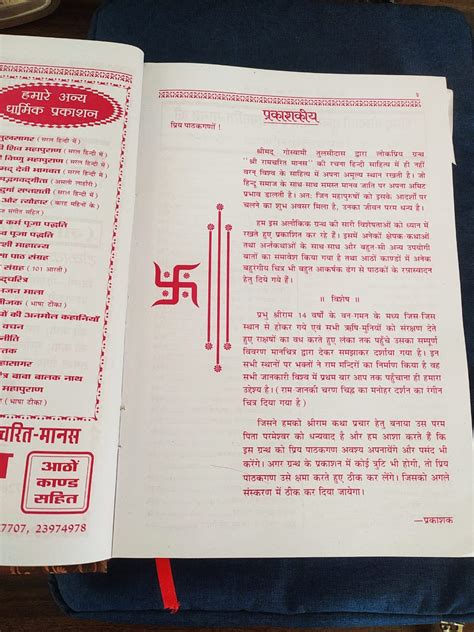 हमारे अन्य
धार्मिक प्रकाशन
सुखसागर (सरल हिन्दी में)
श्री शिव महापुराण (सरल हिन्दी में)
श्री विष्णु महापुराण (सरल हिन्दी में)
दुर्गा सप्तशती (सरल हिन्दी में)
और त्यौहार
कर्म पूजा पद्धति
पूजा पद्धति
माहात्म्य
पाठ संग्रह
संग्रह (101 आरती)
भजन माला
(भाषा टीका)
की अनमोल कहानियाँ
वचन
नीति
महापुराण
चरित-मानस
आठों
काण्ड
सहित
7707, 23974978
प्रकाशकीय
प्रिय पाठकगणों !
श्रीमद् गोस्वामी तुलसीदास द्वारा लोकप्रिय ग्रन्थ
"श्री रामचरित मानस" की रचना हिन्दी साहित्य में ही नहीं
वरन् विश्व के साहित्य में अपना अमूल्य स्थान रखती है। जो
हिन्दू समाज के साथ साथ समस्त मानव जाति पर अपना अमिट
प्रभाव डालती है। अतः जिन महापुरुषों को इसके आदर्शों पर
चलने का शुभ अवसर मिला है, उनका जीवन परम धन्य है।
हम इस अलौकिक ग्रन्थ की सारी विशेषताओं को ध्यान में
रखते हुए प्रकाशित कर रहे हैं। इसमें अनेकों क्षेपक कथाओं
तथा अर्न्तकथाओं के साथ साथ और बहुत-सी अन्य उपयोगी
बातों का समावेश किया गया है तथा आठों काण्डों में अनेक
बहुरंगीय चित्र भी बहुत आकर्षक ढंग से पाठकों के रसास्वादन
हेतु दिये गये हैं।
॥ विशेष ॥
प्रभु श्रीराम 14 वर्षों के वन-गमन के मध्य जिस जिस
स्थान से होकर गये एवं सभी ऋषि-मुनियों को संरक्षण देते
हुए राक्षसों का वध करते हुए लंका तक पहुँचे उसका सम्पूर्ण
विवरण मानचित्र द्वारा देकर समझाकर दर्शाया गया है। इन
सभी स्थानों पर भक्तों ने राम मन्दिरों का निर्माण किया है वह
सभी जानकारी विश्व में प्रथम बार आप तक पहुँचाना ही हमारा
उद्देश्य है। (राम जानकी चरण चिह्न का मनोहर दर्शन का रंगीन
चित्र दिया गया है)
जिसने हमको श्रीराम कथा प्रचार हेतु बनाया उस परम
पिता परमेश्वर को धन्यवाद है और हम आशा करते हैं कि
इस ग्रन्थ को प्रिय पाठकगण अवश्य अपनायेंगे और पसंद भी
करेंगे। अगर ग्रन्थ के प्रकाशन में कोई त्रुटि भी होगी, तो प्रिय
पाठकगण उसे क्षमा करते हुए ठीक कर लेंगे। जिसको अगले
संस्करण में ठीक कर दिया जायेगा।
—प्रकाशक